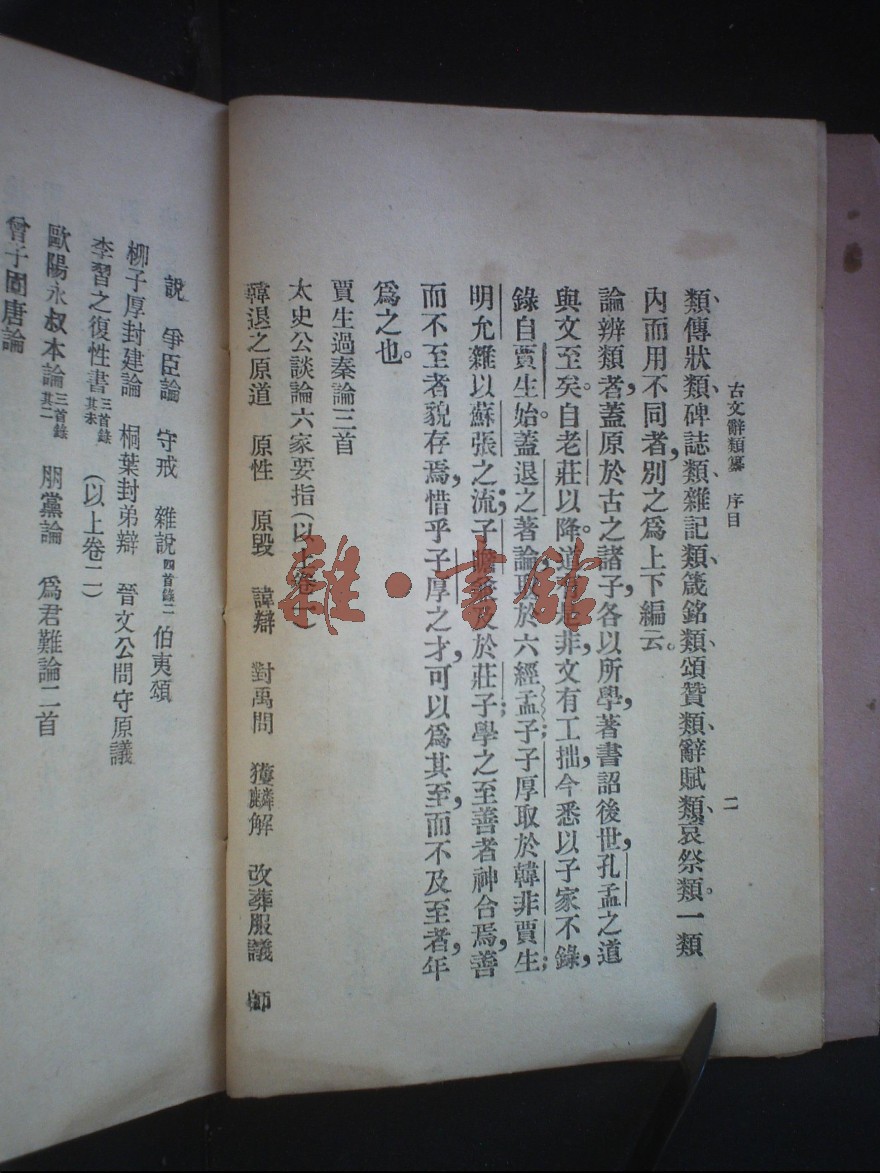 古文辭類纂 序目 二
類、傳狀類、碑誌類、雜記類、箴銘類、頌贊類、辭賦類、哀祭類。一類
內而用不同者，別之爲上下編云。
論辨類者，蓋原於古之諸子，各以所學，著書詔後世，孔孟之道
與文至矣。自老莊以降。道有是非，文有工拙，今悉以子家不錄，
錄自賈生始。蓋退之著論，取於六經孟子；子厚取於韓非賈生；
明允雜以蘇張之流；子瞻及於莊子；學之至善者神合焉，善
而不至者貌存焉，惜乎子厚之才，可以爲其至，而不及至者，年
爲之也。
賈生過秦論三首
太史公談論六家要指（以上卷一）
韓退之原道 原性 原毀 諱辯 對禹問 獲麟解 改葬服議 師
說 爭臣論 守戒 雜說四首錄二 伯夷頌
柳子厚封建論 桐葉封弟辯 晉文公問守原議
李習之復性書三首錄其末（以上卷二）
歐陽永叔本論三首錄其二 朋黨論 爲君難論二首
曾子固唐論
雜·書館